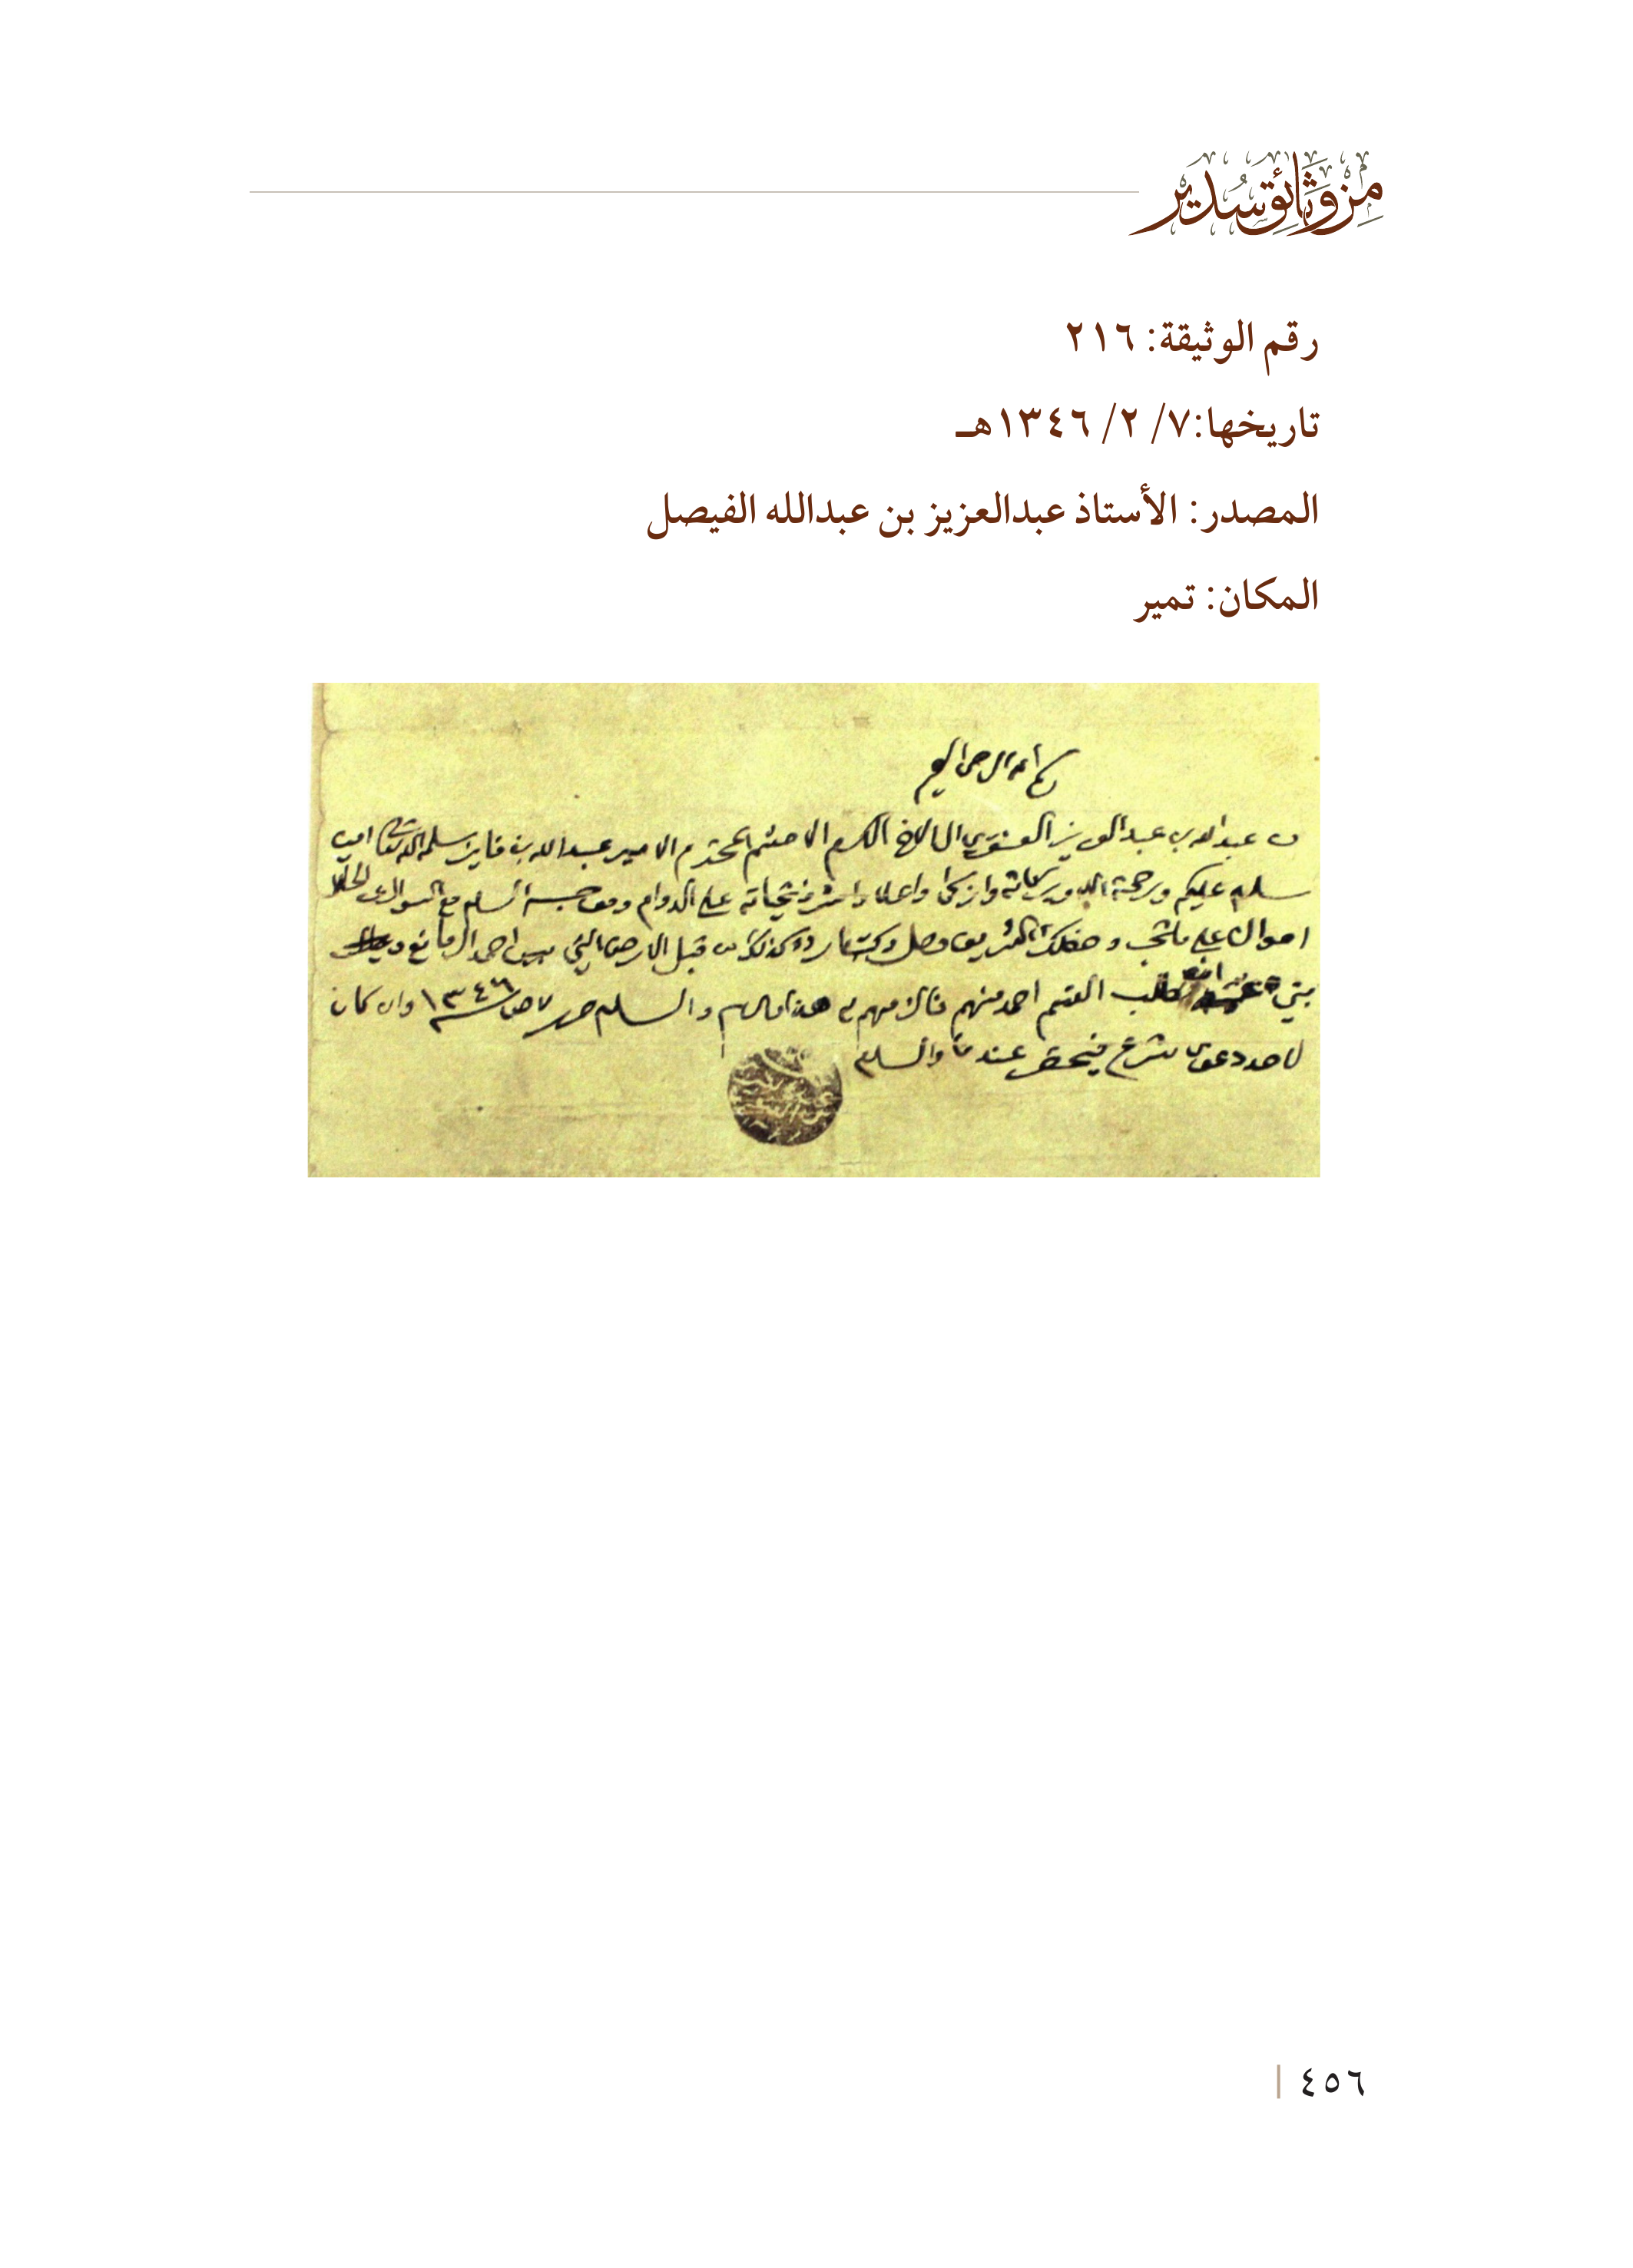 من وثائق سدير
رقم الوثيقة: ٢١٦
تاريخها: ٧/ ٢/ ١٣٤٦هـ
المصدر: الأستاذ عبدالعزيز بن عبدالله الفيصل
المكان: تمير
بسم الله الرحمن الرحيم
من عبد الله بن عبد العزيز العنقري الى الاخ المكرم الاحشم المحترم الامير عبد الله بن فايز سلمه الله تعالى امين
سلام عليكم ورحمة الله وبركاته وازكى واعلا واشرف تحياته على الدوام وموجبه السلام مع السوال عن
احوالك على ما تحب وخطك الشريف وصل وكذلك من قبل الارض التي بين احمد المانع
بتي طلب القسم احد منهم فالزمهم هذا مالزم والسلام حرر ٧ ص ١٣٤٦ وان كان
لاحد دعوى شرع فيحضر عندنا والسلام
٤٥٦